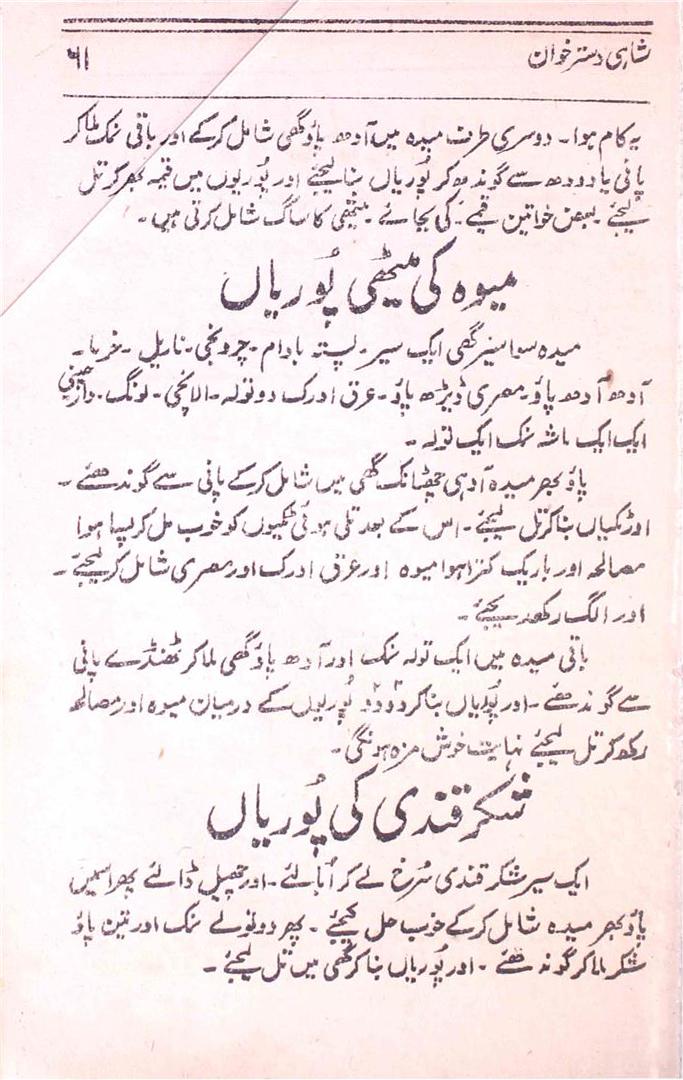 شاہی دسترخوان
۶۱
یہ کام ہوا۔ دوسری طرف میدہ میں آدھ پاؤ گھی شامل کرکے اور باقی نمک ملا کر
پانی یا دودھ سے گوندھ کر پُوریاں بنا لیجئے اور پُوریوں میں قیمہ بھر کر تل
لیجئے۔ بعض خواتین قیمے۔ کی بجائے۔ میتھی کا ساگ شامل کرتی ہیں۔
میوہ کی میٹھی پُوریاں
میدہ سوا سیر گھی ایک سیر۔ پستہ بادام۔ چرونجی۔ ناریل۔ خرما۔
آدھ آدھ پاؤ۔ مصری ڈیڑھ پاؤ۔ عرق ادرک دو تولہ۔ الائچی۔ لونگ۔ دارچینی
ایک ایک ماشہ نمک ایک تولہ۔
پاؤ بھر میدہ آدہی چھٹانک گھی میں شامل کرکے پانی سے گوندھئے۔
اور ٹکیاں بنا کر تل لیجئے۔ اس کے بعد تلی ہوئی ٹکیوں کو خوب مل کر پسا ہوا
مصالحہ اور باریک کترا ہوا میوہ اور عرق ادرک اور مصری شامل کر لیجئے۔
اور الگ رکھ دیجئے۔
باقی میدہ میں ایک تولہ نمک اور آدھ پاؤ گھی ملا کر ٹھنڈے پانی
سے گوندھئے۔ اور پُوریاں بنا کر دو دو پُوریوں کے درمیان میوہ اور مصالحہ
رکھ کر تل لیجئے نہایت خوش مزہ ہونگی۔
شکر قندی کی پُوریاں
ایک سیر شکر قندی سُرخ لے کر اُبالئے۔ اور چھیل ڈالئے پھر اسمیں
پاؤ بھر میدہ شامل کرکے خوب حل کیجئے۔ پھر دو تولے نمک اور تین پاؤ
شکر ملا کر گوندھئے۔ اور پُوریاں بنا کر گھی میں تل لیجئے۔